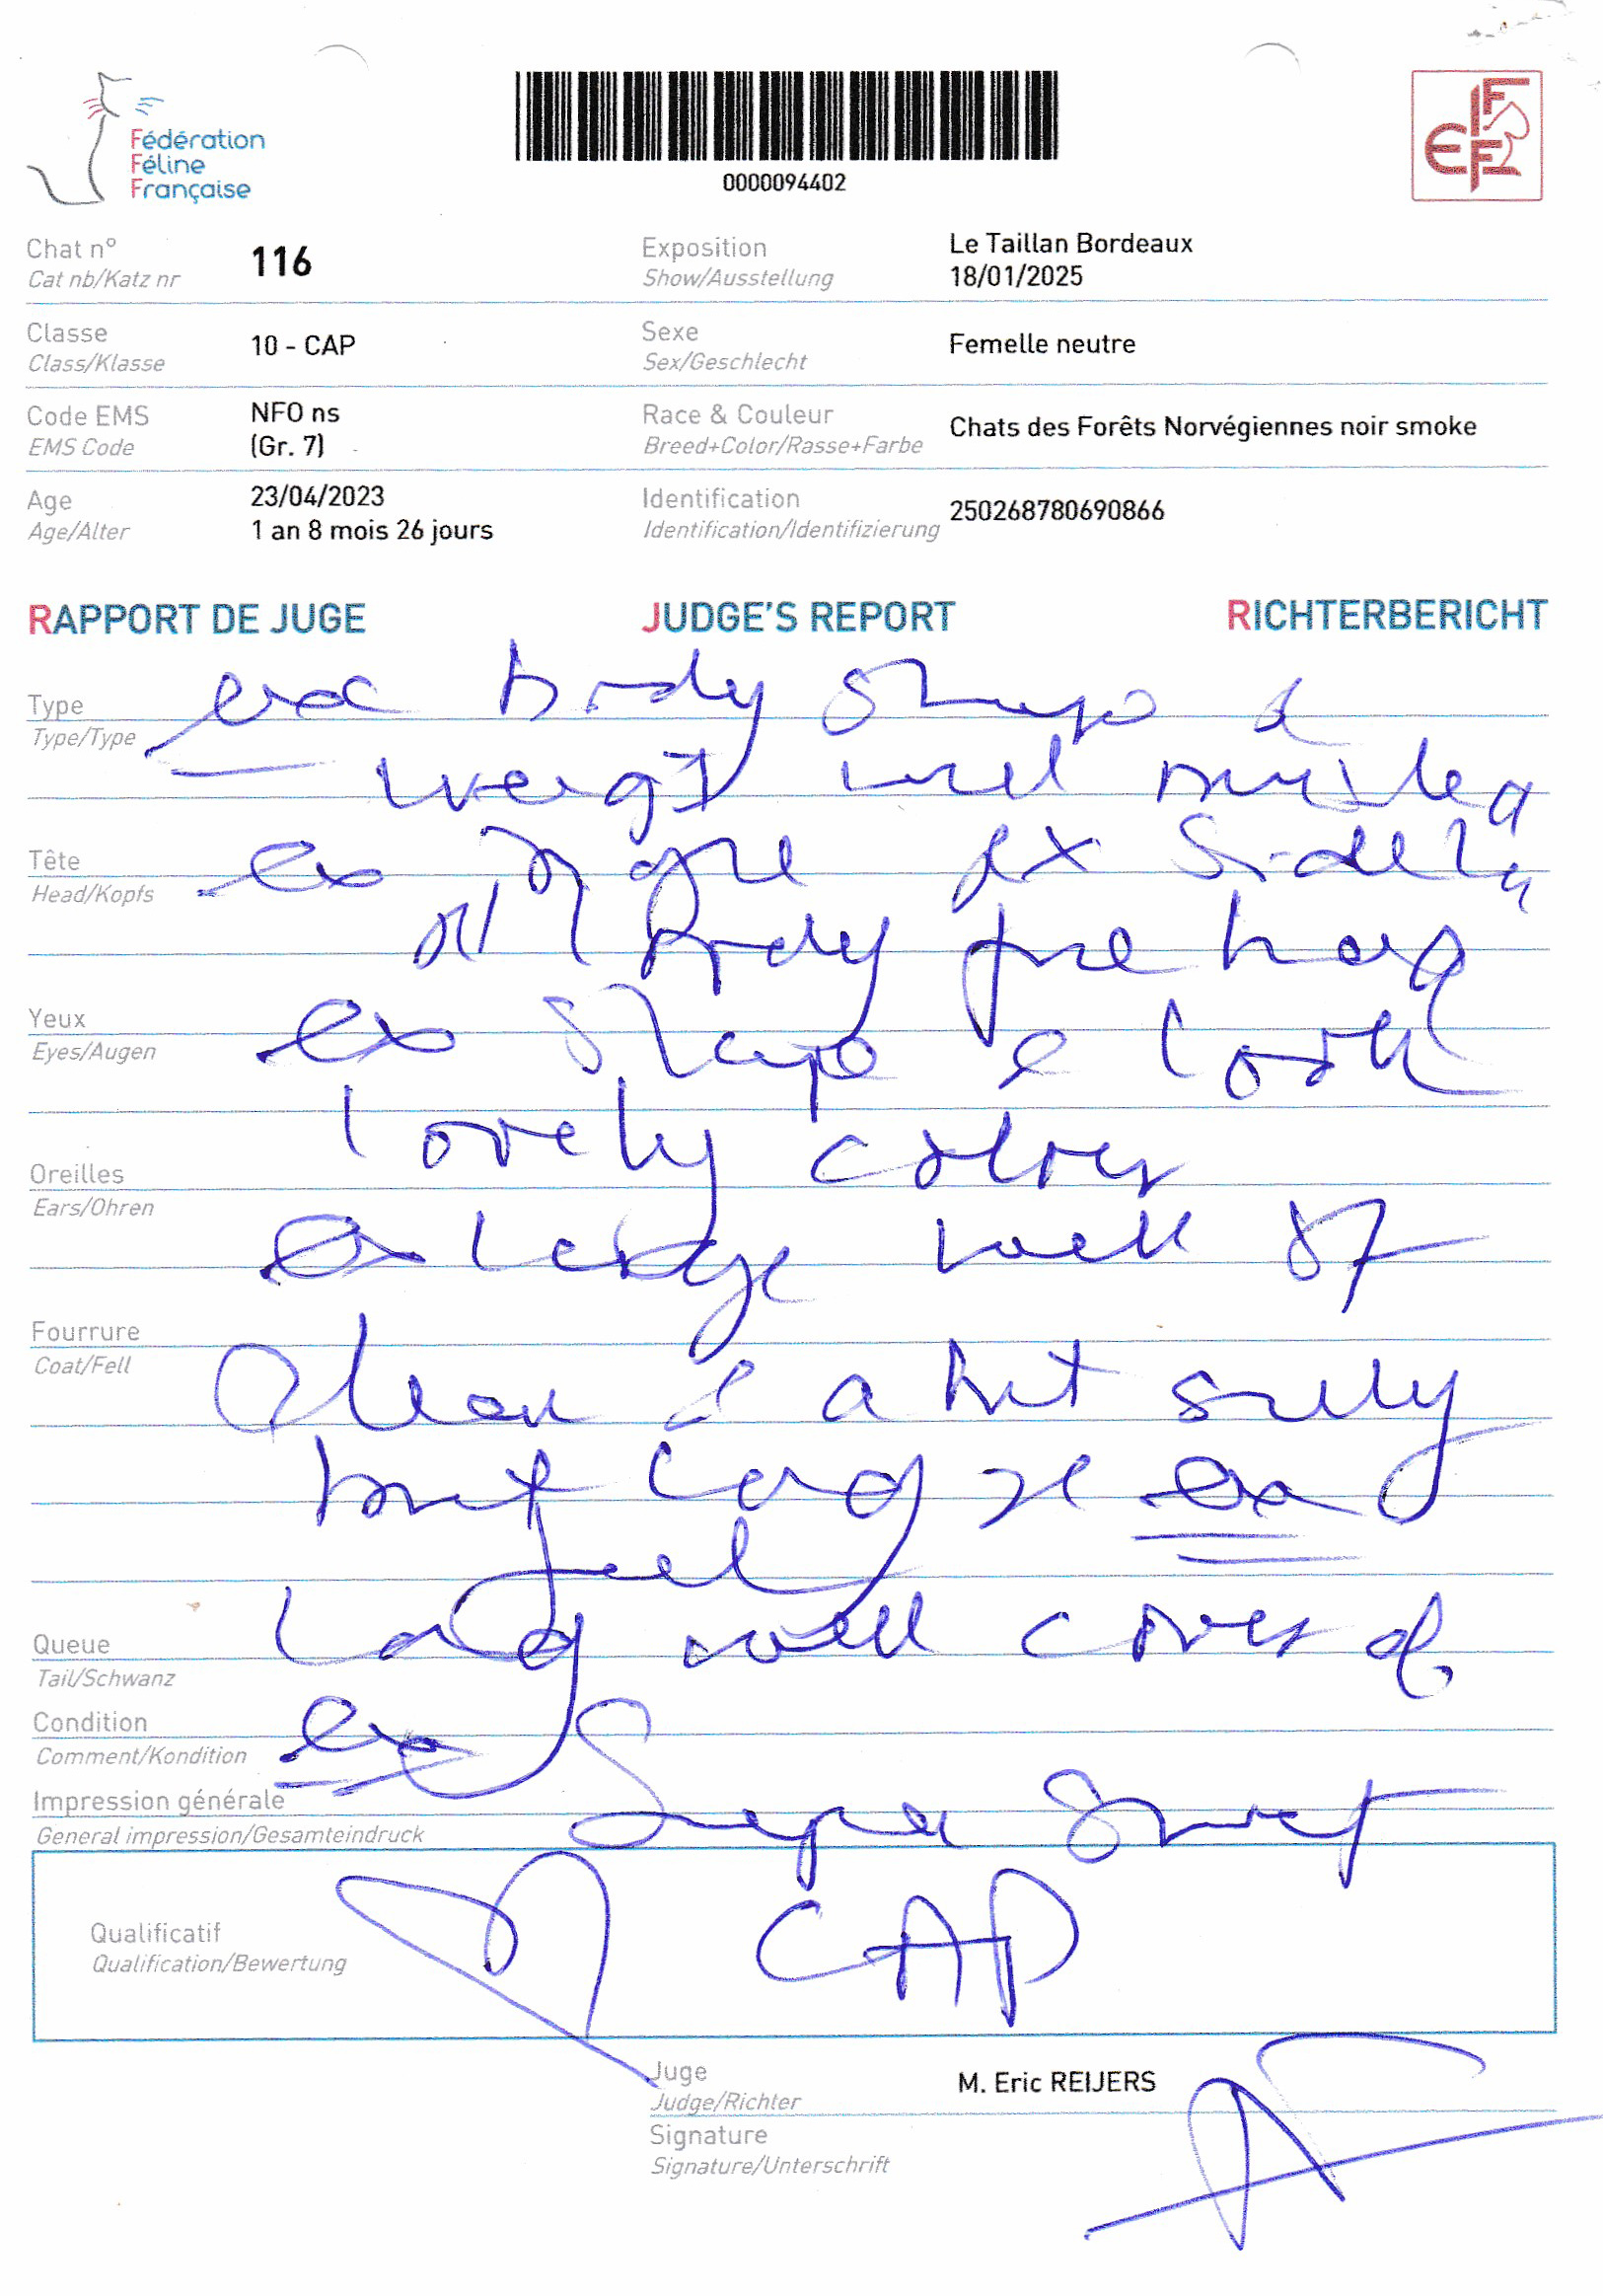 Fédération
Féline
Française
0000094402
FIFE
Chat n° 116 Exposition Le Taillan Bordeaux
Cat nb/Katz nr Show/Ausstellung 18/01/2025
Classe 10 - CAP Sexe Femelle neutre
Class/Klasse Sex/Geschlecht
Code EMS NFO ns Race & Couleur Chats des Forêts Norvégiennes noir smoke
EMS Code (Gr. 7) Breed+Color/Rasse+Farbe
Age 23/04/2023 Identification 250268780690866
Age/Alter 1 an 8 mois 26 jours Identification/Identifizierung
RAPPORT DE JUGE JUDGE'S REPORT RICHTERBERICHT
Type body shape &
Type/Type
weight well
Tête ex ex
Head/Kopfs
body fine
Yeux ex shape & look
Eyes/Augen
lovely colour
Oreilles
Ears/Ohren
ex large well
Fourrure
Coat/Fell
clean & a bit
but ex
Queue long well covered
Tail/Schwanz
Condition ex
Comment/Kondition
Impression générale Super sweet
General impression/Gesamteindruck
Qualificatif CAP
Qualification/Bewertung
Juge M. Eric REIJERS
Judge/Richter
Signature
Signature/Unterschrift